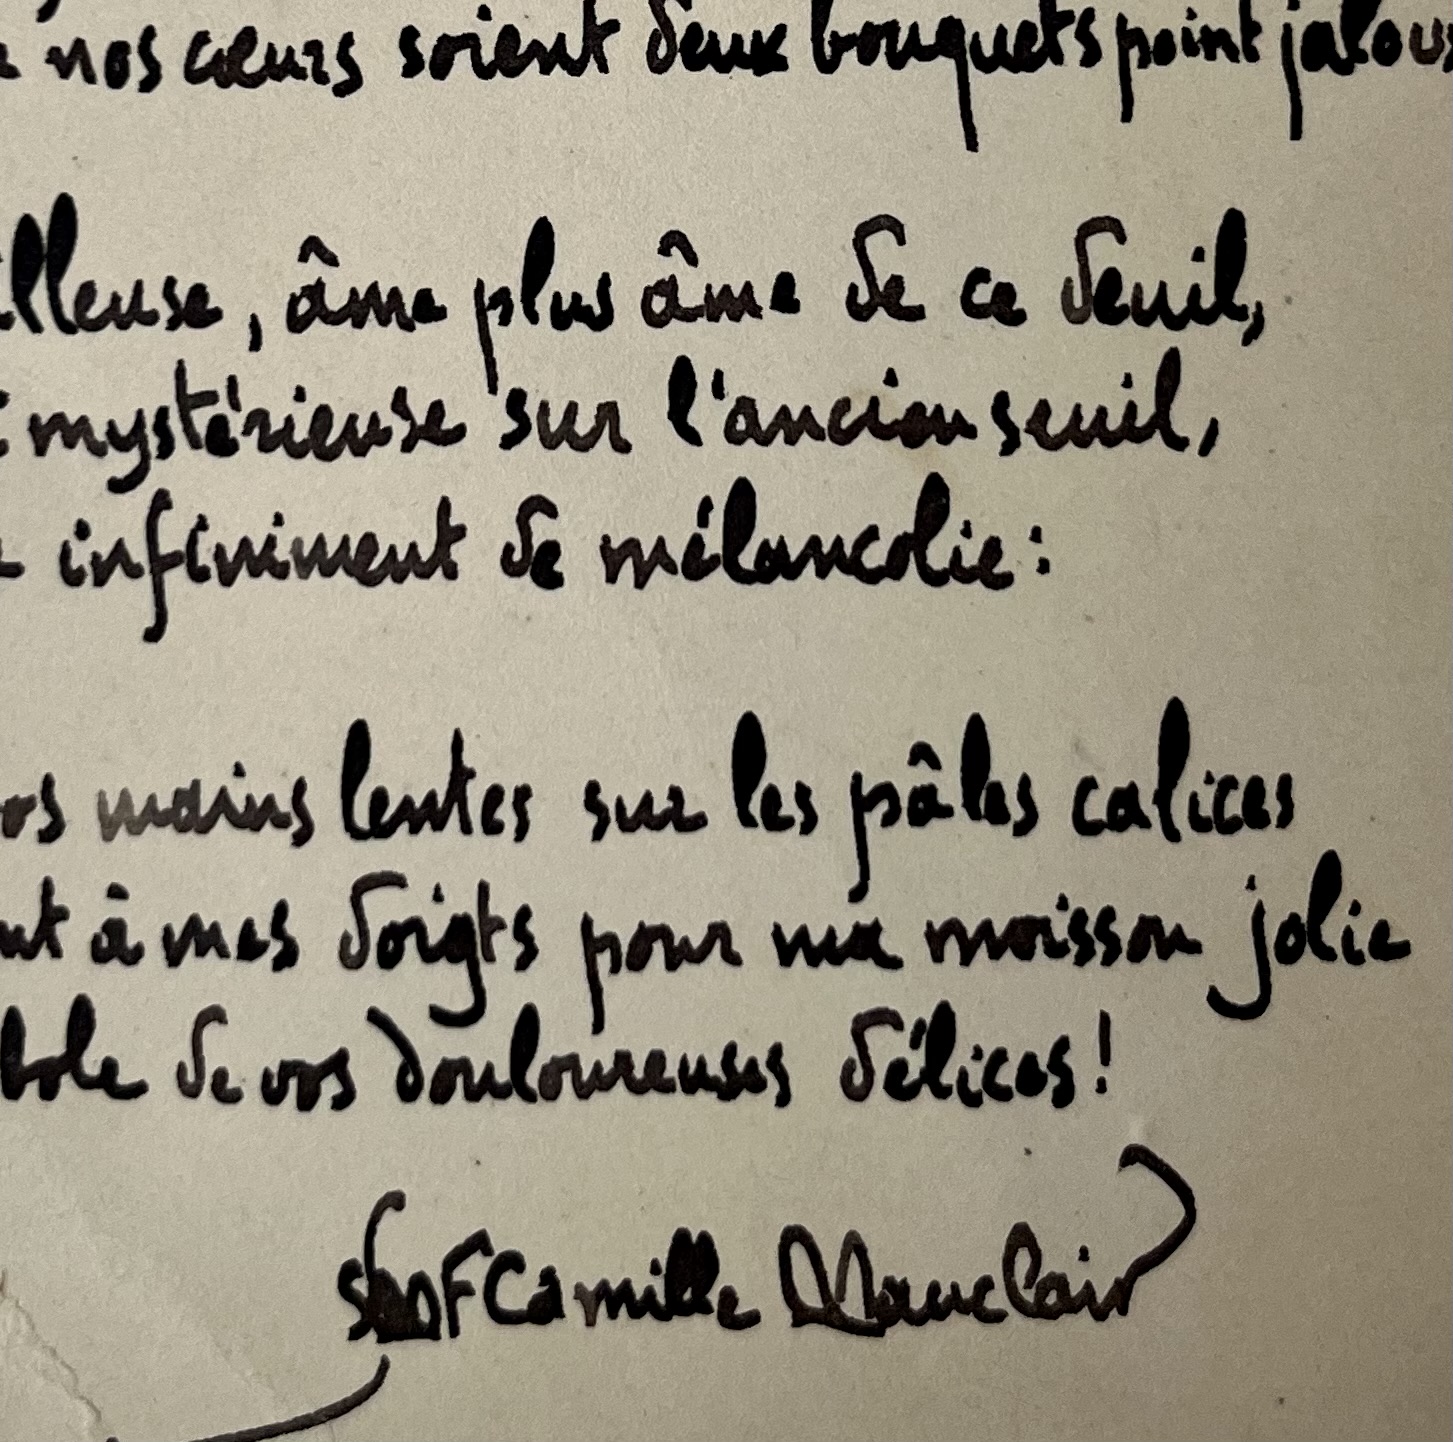 nos cœurs soient deux bouquets point jalous
illeuse, âme plus âme de ce deuil,
mystérieuse sur l'ancien seuil,
infiniment de mélancolie:
os mains lentes sur les pâles calices
nt à mes doigts pour une moisson jolie
bole de vos douloureuses délices!
Camille Mauclair